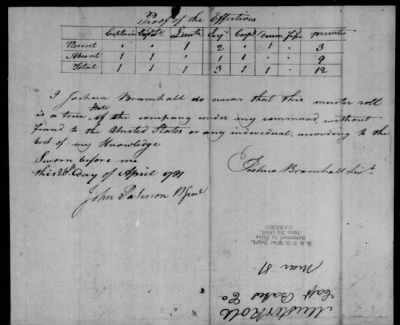 Proof of the Effectives
Captain Lieut. Serjt Corpl Drum Fife Privates
Present " " 1 2 " 1 " 3
Absent 1 1 " 1 1 " " 9
Total 1 1 1 3 1 1 " 12
I Joshua Bramhall do swear that this muster roll
is a true State of the company under my command, without
fraud to the United States or any individual, according to the
best of my Knowledge
Sworn before me
this Day of April 1781
Joshua Bramhall Lieut.
John Paterson B Genl
Muster Roll
Capt Bates Co
Mar 81